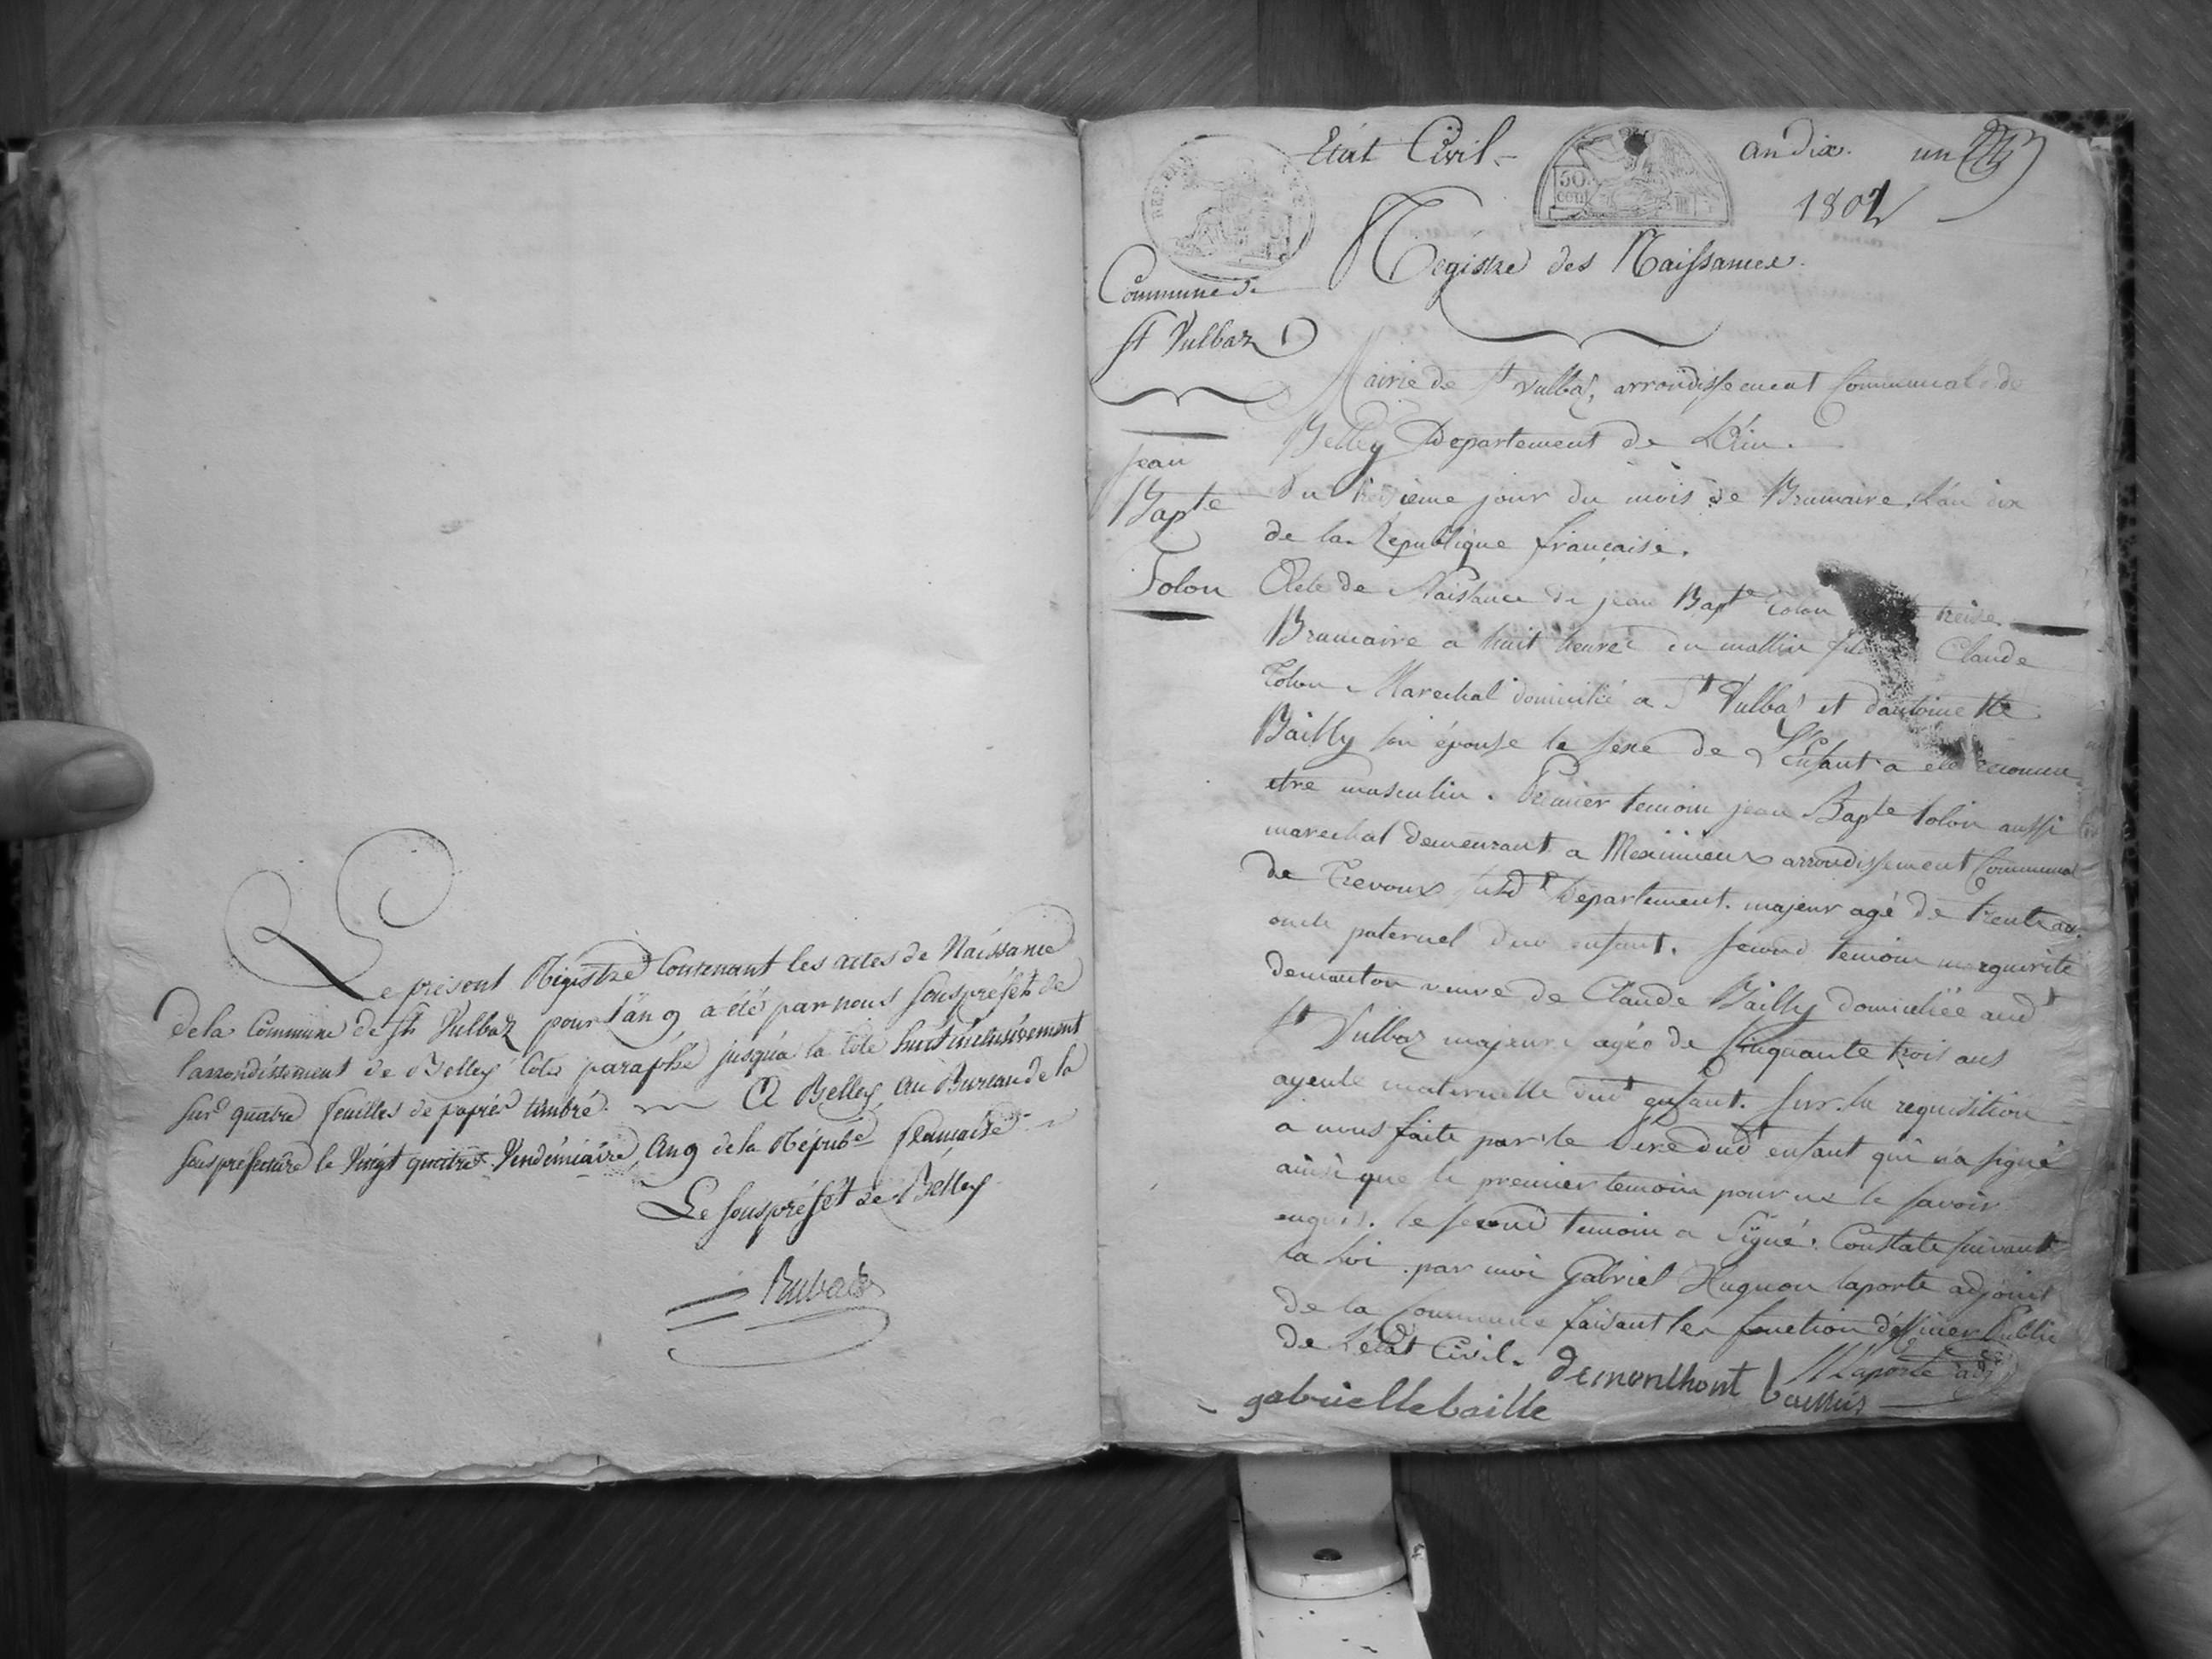 Le présent Régistre Contenant les actes de Naissance
de la Commune de St Vulbaz pour l'an 9 a été par nous souspréfet de
l'arrondissement de Belley coté paraphé jusqu'a la cote huit inclusivement
sur quatre feuilles de papier timbré. A Belley au Bureau de la
souspréfecture le Vingt quatre Vendémiaire, an 9 de la Répub. française
Le souspréfet de Belley
Etat Civil
50
cent
an dix.
un
1802
Régistre des Naissances.
Commune de
St Vulbaz
Mairie de St Vulbas, arrondissement Communal de
Belley Département de L'Ain.
Jean
Bapte
Tolon
Du treisième jour du mois de Brumaire L'an dix
de la République française.
Acte de Naissance de jean Bapte tolon treise
Brumaire a huit heures du mattin fils Claude
Tolon Marechal domicilié a St Vulbas et d'antoinette
Bailly son épouse le sexe de L'Enfant a été reconnu
etre masculin. Premier temoin jean Bapte tolon aussi
marechal demeurant a Meximieux arrondissement Communal
de Trevoux susdt Département. majeur agé de trente ans
oncle paternel dud enfant. second temoin marguerite
demonton veuve de Claude Bailly domiciliée audt
St Vulbaz majeure agée de Cinquante trois ans
ayeule maternelle dudt enfant. sur la requisition
a nous faite par le Pere dudt enfant qui n'a signé
ainsi que le premier temoin pour ne le savoir
enquis. le second temoin a Signé. Constaté suivant
la loi. par moi Gabriel Hugnon laporte adjoint
de la Commune faisant les fonction d'officier Public
de L'etat Civil.
demonthont
laporte adj
gabriellebaille